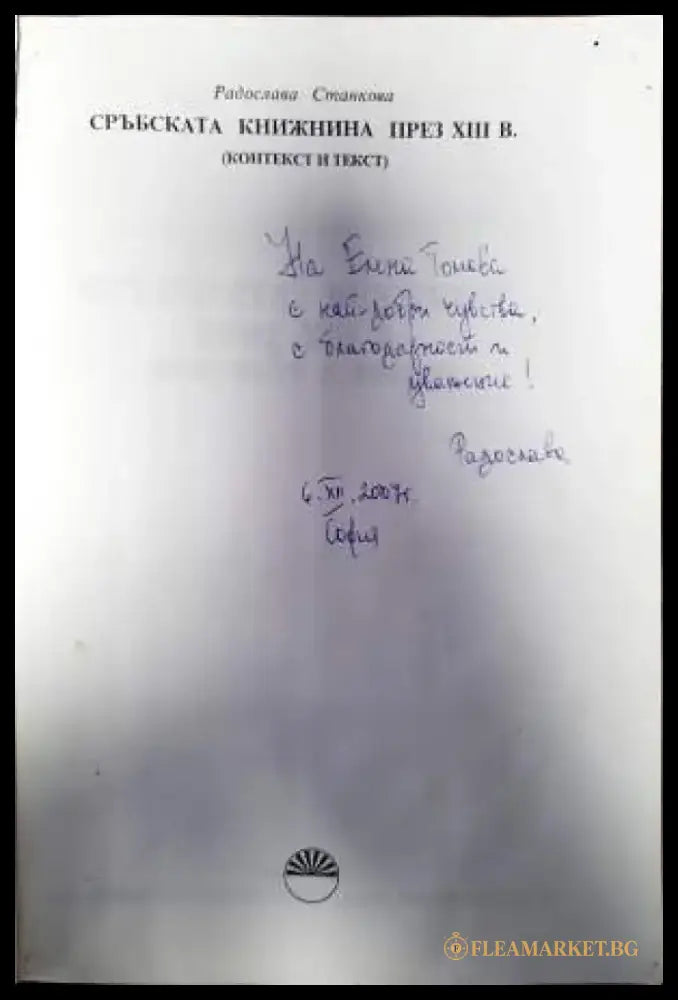 Радослава Станкова
СРЪБСКАТА КНИЖНИНА ПРЕЗ XIII В.
(КОНТЕКСТ И ТЕКСТ)
На Елена Томова
с най-добри чувства,
с благодарност и
уважение!
Радослава
6.XII.2007г.
София
FLEAMARKET.BG